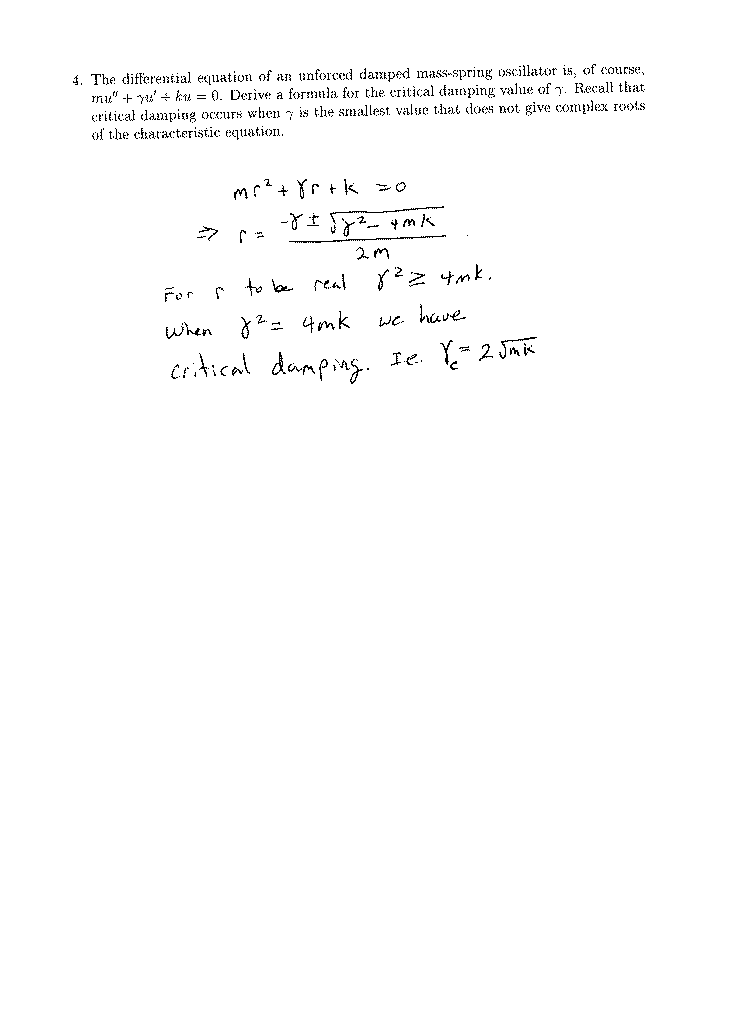 4. The differential equation of an unforced damped mass-spring oscillator is, of course,
mu″ + γu′ + ku = 0. Derive a formula for the critical damping value of γ. Recall that
critical damping occurs when γ is the smallest value that does not give complex roots
of the characteristic equation.
mr² + γr + k = 0
⇒ r = (-γ ± √(γ² - 4mk)) / 2m
For r to be real γ² ≥ 4mk.
When γ² = 4mk we have
critical damping. I.e. γc = 2√mk